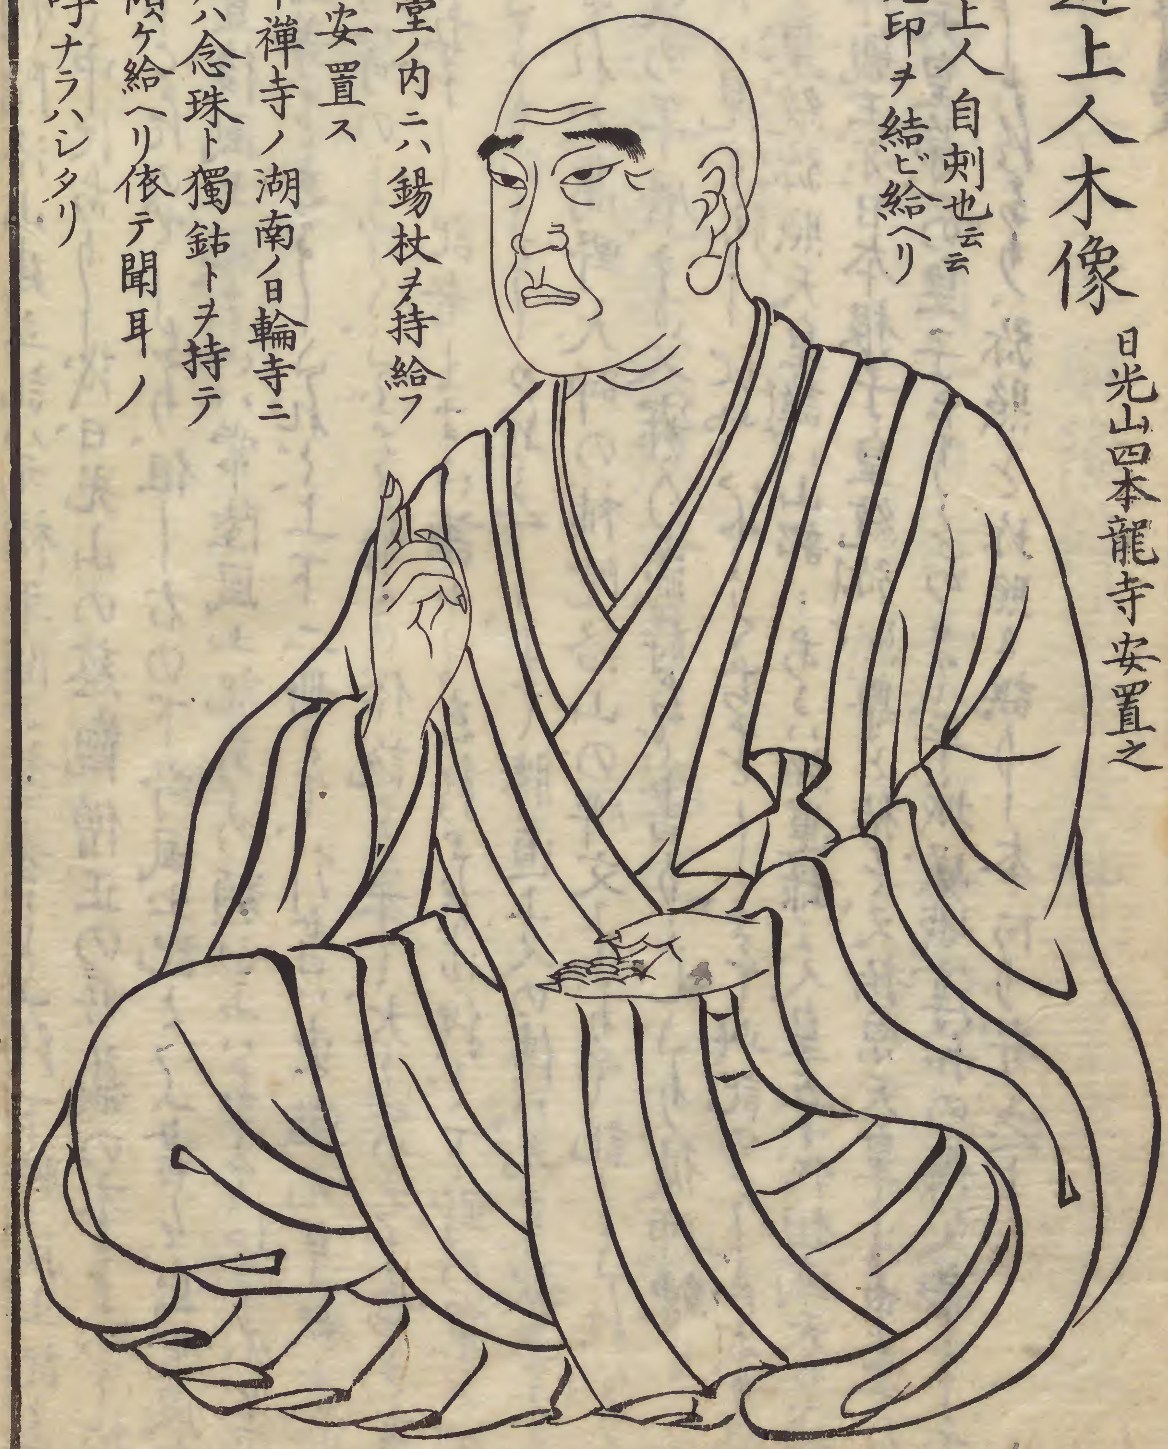 上人木像
日光山四本龍寺安置之
上人自刻也云云
印ヲ結ビ給ヘリ
堂ノ内ニハ錫杖ヲ持給フ
安置ス
禪寺ノ湖南ノ日輪寺ニ
ハ念珠ト獨鈷トヲ持テ
ケ給ヘリ依テ聞耳ノ
呼ナラハシタリ